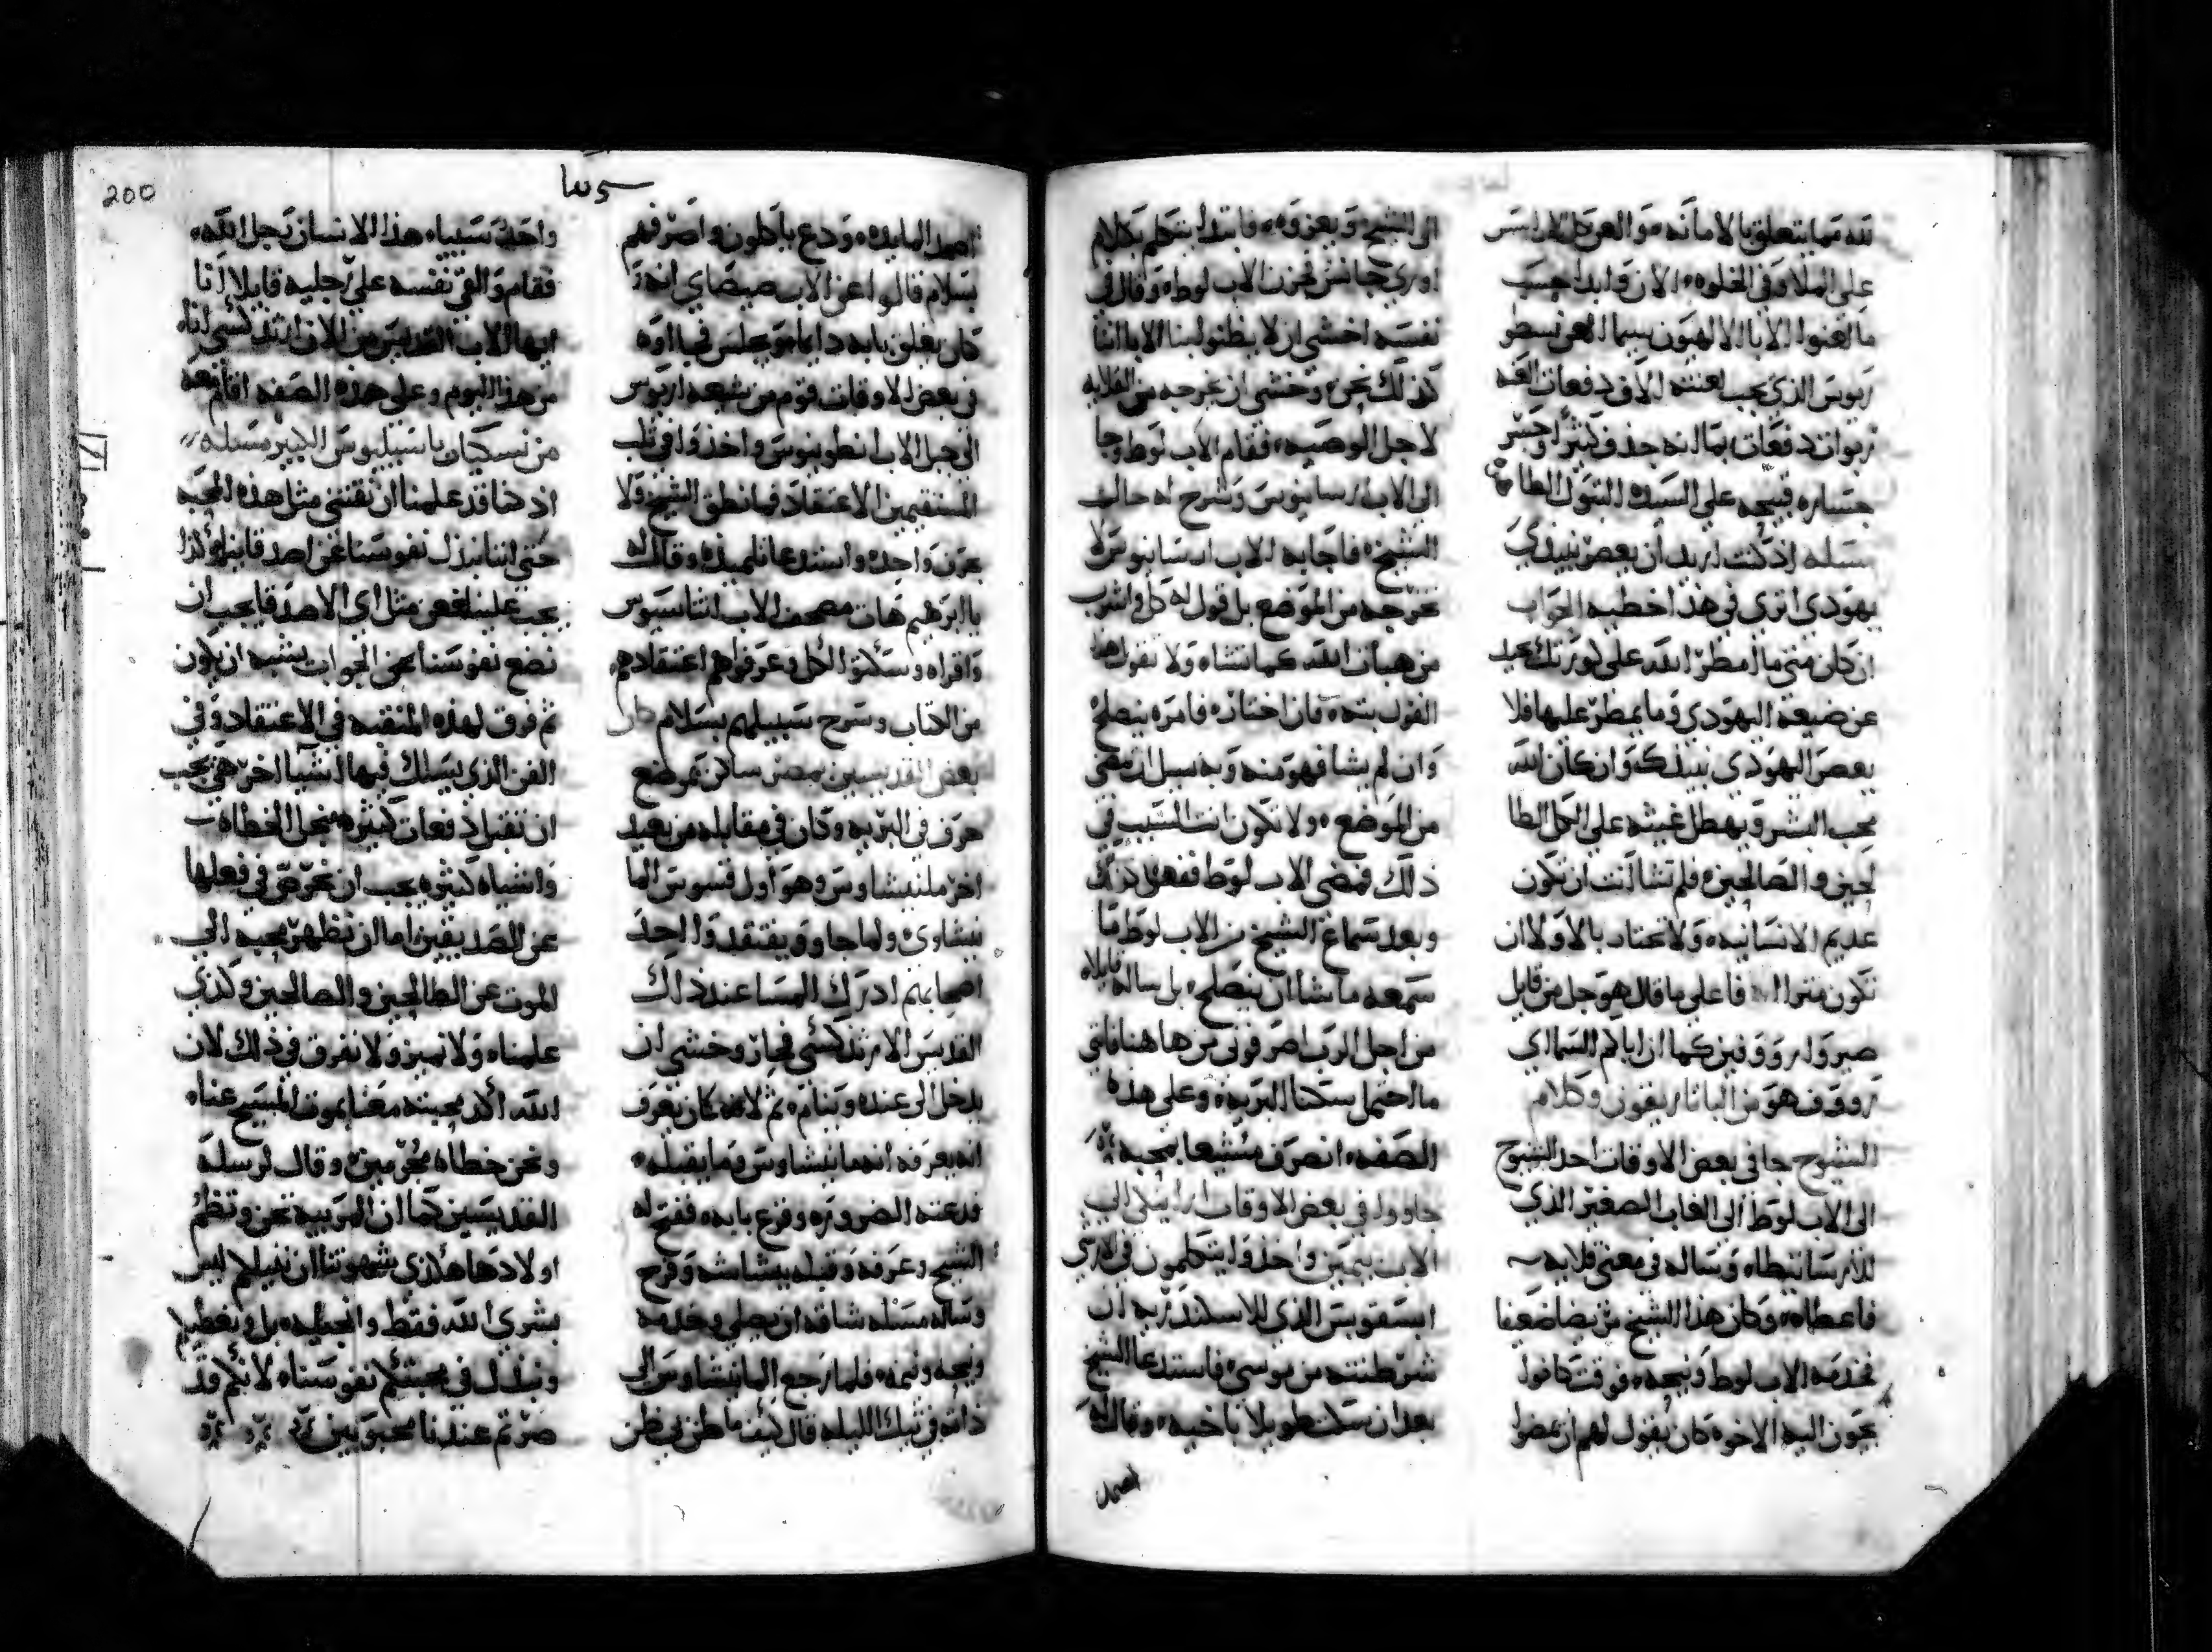 لله مما يتعلق بالامانه والعن كل اراسس
على الملا وفي الخلوه الان وابدا حسب
ما لعنوا الابا الالهيون سيما العن نسطو
ريوس الذي يجب لعنته الاف دفعات العنه
ربوات دفعات بما انه جدف كثيرا وجسر
جساره قبيحه على السيده البتول الطاهره
مسله اذ كنت اريد ان يعصر نبيدي
يهودي اترى في هذا اخطيه الجواب
ان كان متى ما امطر الله على كورتك يحيد
عن ضيعة اليهودي وما يمطر عليها فلا
يعصر اليهودي نبيدك وان كان الله
يحب البشر ويهطل غيثه على الكل الطا
لحين والصالحين فلم تشا انت ان تكون
عديم الانسانيه ولا تختار بالاولى ان
تكون فاعلى ما قال هو جل من قايل
صيروا رووفين كما ان اباكم السماي
رووف هو من البانا ريقون وكلام
الشيوخ جا في بعض الاوقات احد الشيوخ
الى الاب لوط الى الغاب الصغير الذي
للارسانيطاه وساله في معنى قلايه
فاعطاه وكان هذا الشيخ مريضا ضعيفا
فخدمه الاب لوط ونيحه فوقت كانوا
يجون اليه الاخوه كان يقول لهم ان يمضوا
الى الشيخ ويعزوه فابتدا يتكلم بكلام
اوريجانس فحزن الاب لوط وقال في
نفسه اخشى ان لا يظنوا بنا الابا اننا
كذلك نحن وخشى ان يخرجه من القلايه
لاجل الوصيه فقام الاب لوط وجا
الى الاب ارسانيوس وشرح له حال
الشيخ فاجابه الاب ارسانيوس لا
تخرجه من الموضع بل قول له كل واشرب
من هبات الله كما تشاه ولا تقول هذا
القول بته فان اختار فامره ينصلح
وان لم يشا فهو منه وبه سبيل ان يمضي
من الموضع ولا تكون انت السبب في
ذلك فمضى الاب لوط ففعل كذلك
وبعد سماع الشيخ من الاب لوط ما
سمعه ما شا ان ينصلح بل ساله قايلاه
من اجل الرب اصرفوني من هاهنا فانني
ما احتمل سكنا البريه وعلى هذه
الصفه انصرف مشيعا بمحبه
جاووا في بعض الاوقات ارايسكي الى
الاب بيمين واخذوا يتكلمون في الارشي
ابسقوبس الذي للاسكندريه ان
شرطنته من بوسي فاستدعا الشيخ
بعد ان سكت طويلا باخيه وقال له
اصمد
اصمد المايده ودع ياكلون واصرفهم
بسلام قالوا عن الاب صيصاي انه
كان يغلق بابه دايما ويجلس
في بعض الاوقات قوم من شيعه اريوس
الى جبل الاب انطونيوس واخذوا في ثلب
المستقيمين الاعتقاد فما نطق الشيخ ولا
بحرف واحده واستدعا تلميذه وقال له
يا ابرهيم هات مصحف الاب اثناسيوس
واقراه وسكتوا الكل وعرفوا هم اعتقادهم
من الكتاب وسرح سبيلهم بسلام كان
بعض القديسين بمصر ساكن بموضع
حرق في البريه وكان في مقابله من بعيد
اخر ملنيشاوس وهو اول قسوس المـا
نيشاوى ولما جا ويفتقد واحد
اصحابهم ادركه المسا عند ذلك
القديس الارثدكسي فحار وخشى ان
يدخل الى عنده وينام ثم لانه كان يعرف
انه يعرفه انه مانيشاوس وما يقبله
فدعته الضروره وقرع بابه ففتح له
الشيخ وعرفه وقبله ببشاشه وفرح
وساله مسئله شاقه ان يصلي وخدمه
ونيحه ونيمه فلما رجع المانيشاوس الى
ذاته في تيك الليله قال كيف ما ظن بي ظن
واحده سيياه هذا الانسان رجل الله
فقام والقى نفسه على رجليه قايلا انا
ايها الاب القديس من الان ارتدكسي اناه
من هذا اليوم وعلى هذه الصفه اقام معه
من نسكيات باسيليوس الكبير مسله
اذ هنا قد علمنا ان نقتني مثل هذه المحبه
حتى اننا نبذل نفوسنا عن اصدقاينا
يجب علينا نفعي مثل اي الاصدقا يجب ان
نضع نفوسنا عن الجواب يشبه ان يكون
ثم فرق لهذه المنقبه في الاعتقاد وفي
الفن الذي يسلك فيها اشيا اخر هي يجب
ان تقبل دفعات كثيره من اجل الخطاه
واشياه كثيره يجب ان نحرص في فعلها
عن الصديقين اما ان نظهر محبه الى
الموت عن الطالحين والصالحين وكذي
علمناه ولا نميز ولا نفرق في ذلك لان
الله اكد محبته معنا بموت المسيح عناه
ونحن خطاه مجرمين وقال لرسله
القديسين كما ان المربيه تحن وتضم
اولادها هكذي شهوتنا ان نسلم ليس
بشرى الله فقط وانجيله بل ونعطيكم
ونبذل في محبتكم نفوسناه لانكم قد
صرتم عندنا محبوبين
200